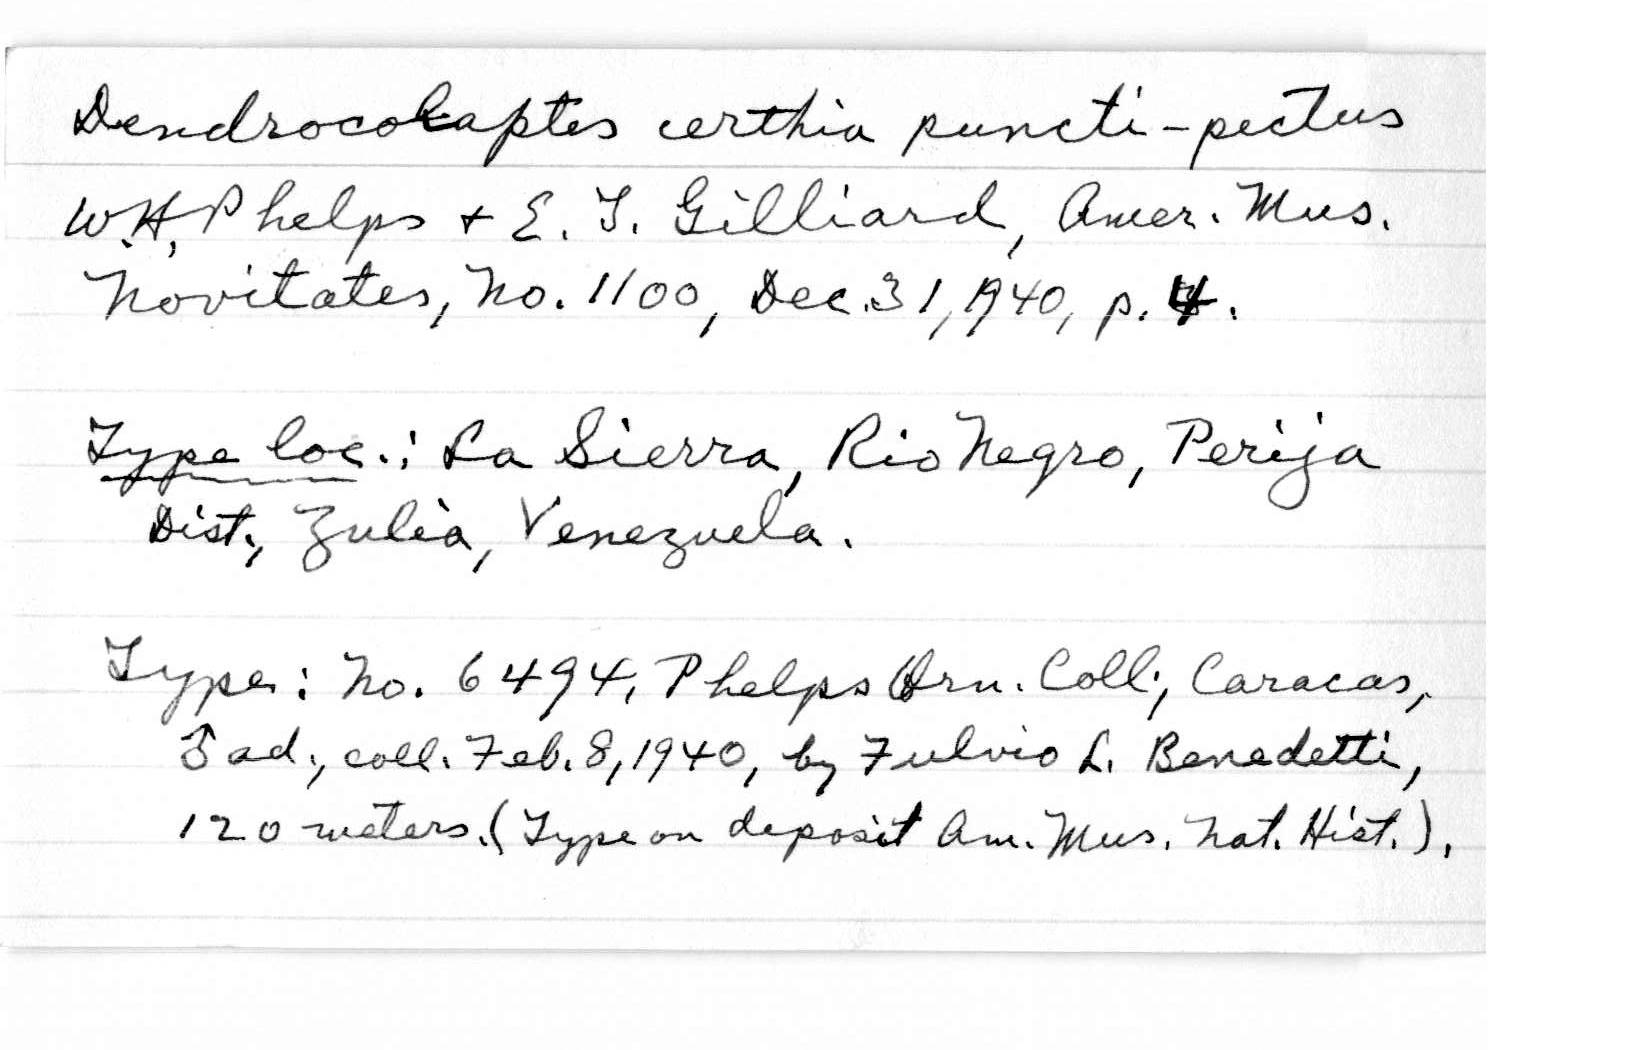 Dendrocolaptes certhia puncti-pectus
W.H. Phelps + E. T. Gilliard, Amer. Mus.
Novitates, No. 1100, Dec. 31, 1940, p. 4.
Type loc.: La Sierra, Rio Negro, Perija
Dist., Zulia, Venezuela.
Type: No. 6494, Phelps Orn. Coll., Caracas,
♂ ad., coll. Feb. 8, 1940, by Fulvio L. Benedetti,
120 meters. (Type on deposit Am. Mus. Nat. Hist.).